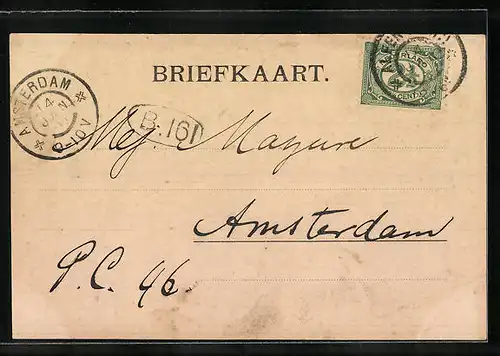 BRIEFKAART.
AMSTERDAM
4 JAN
9-10V
B. 161
Mej. Mazure
Amsterdam
P.C. 46.